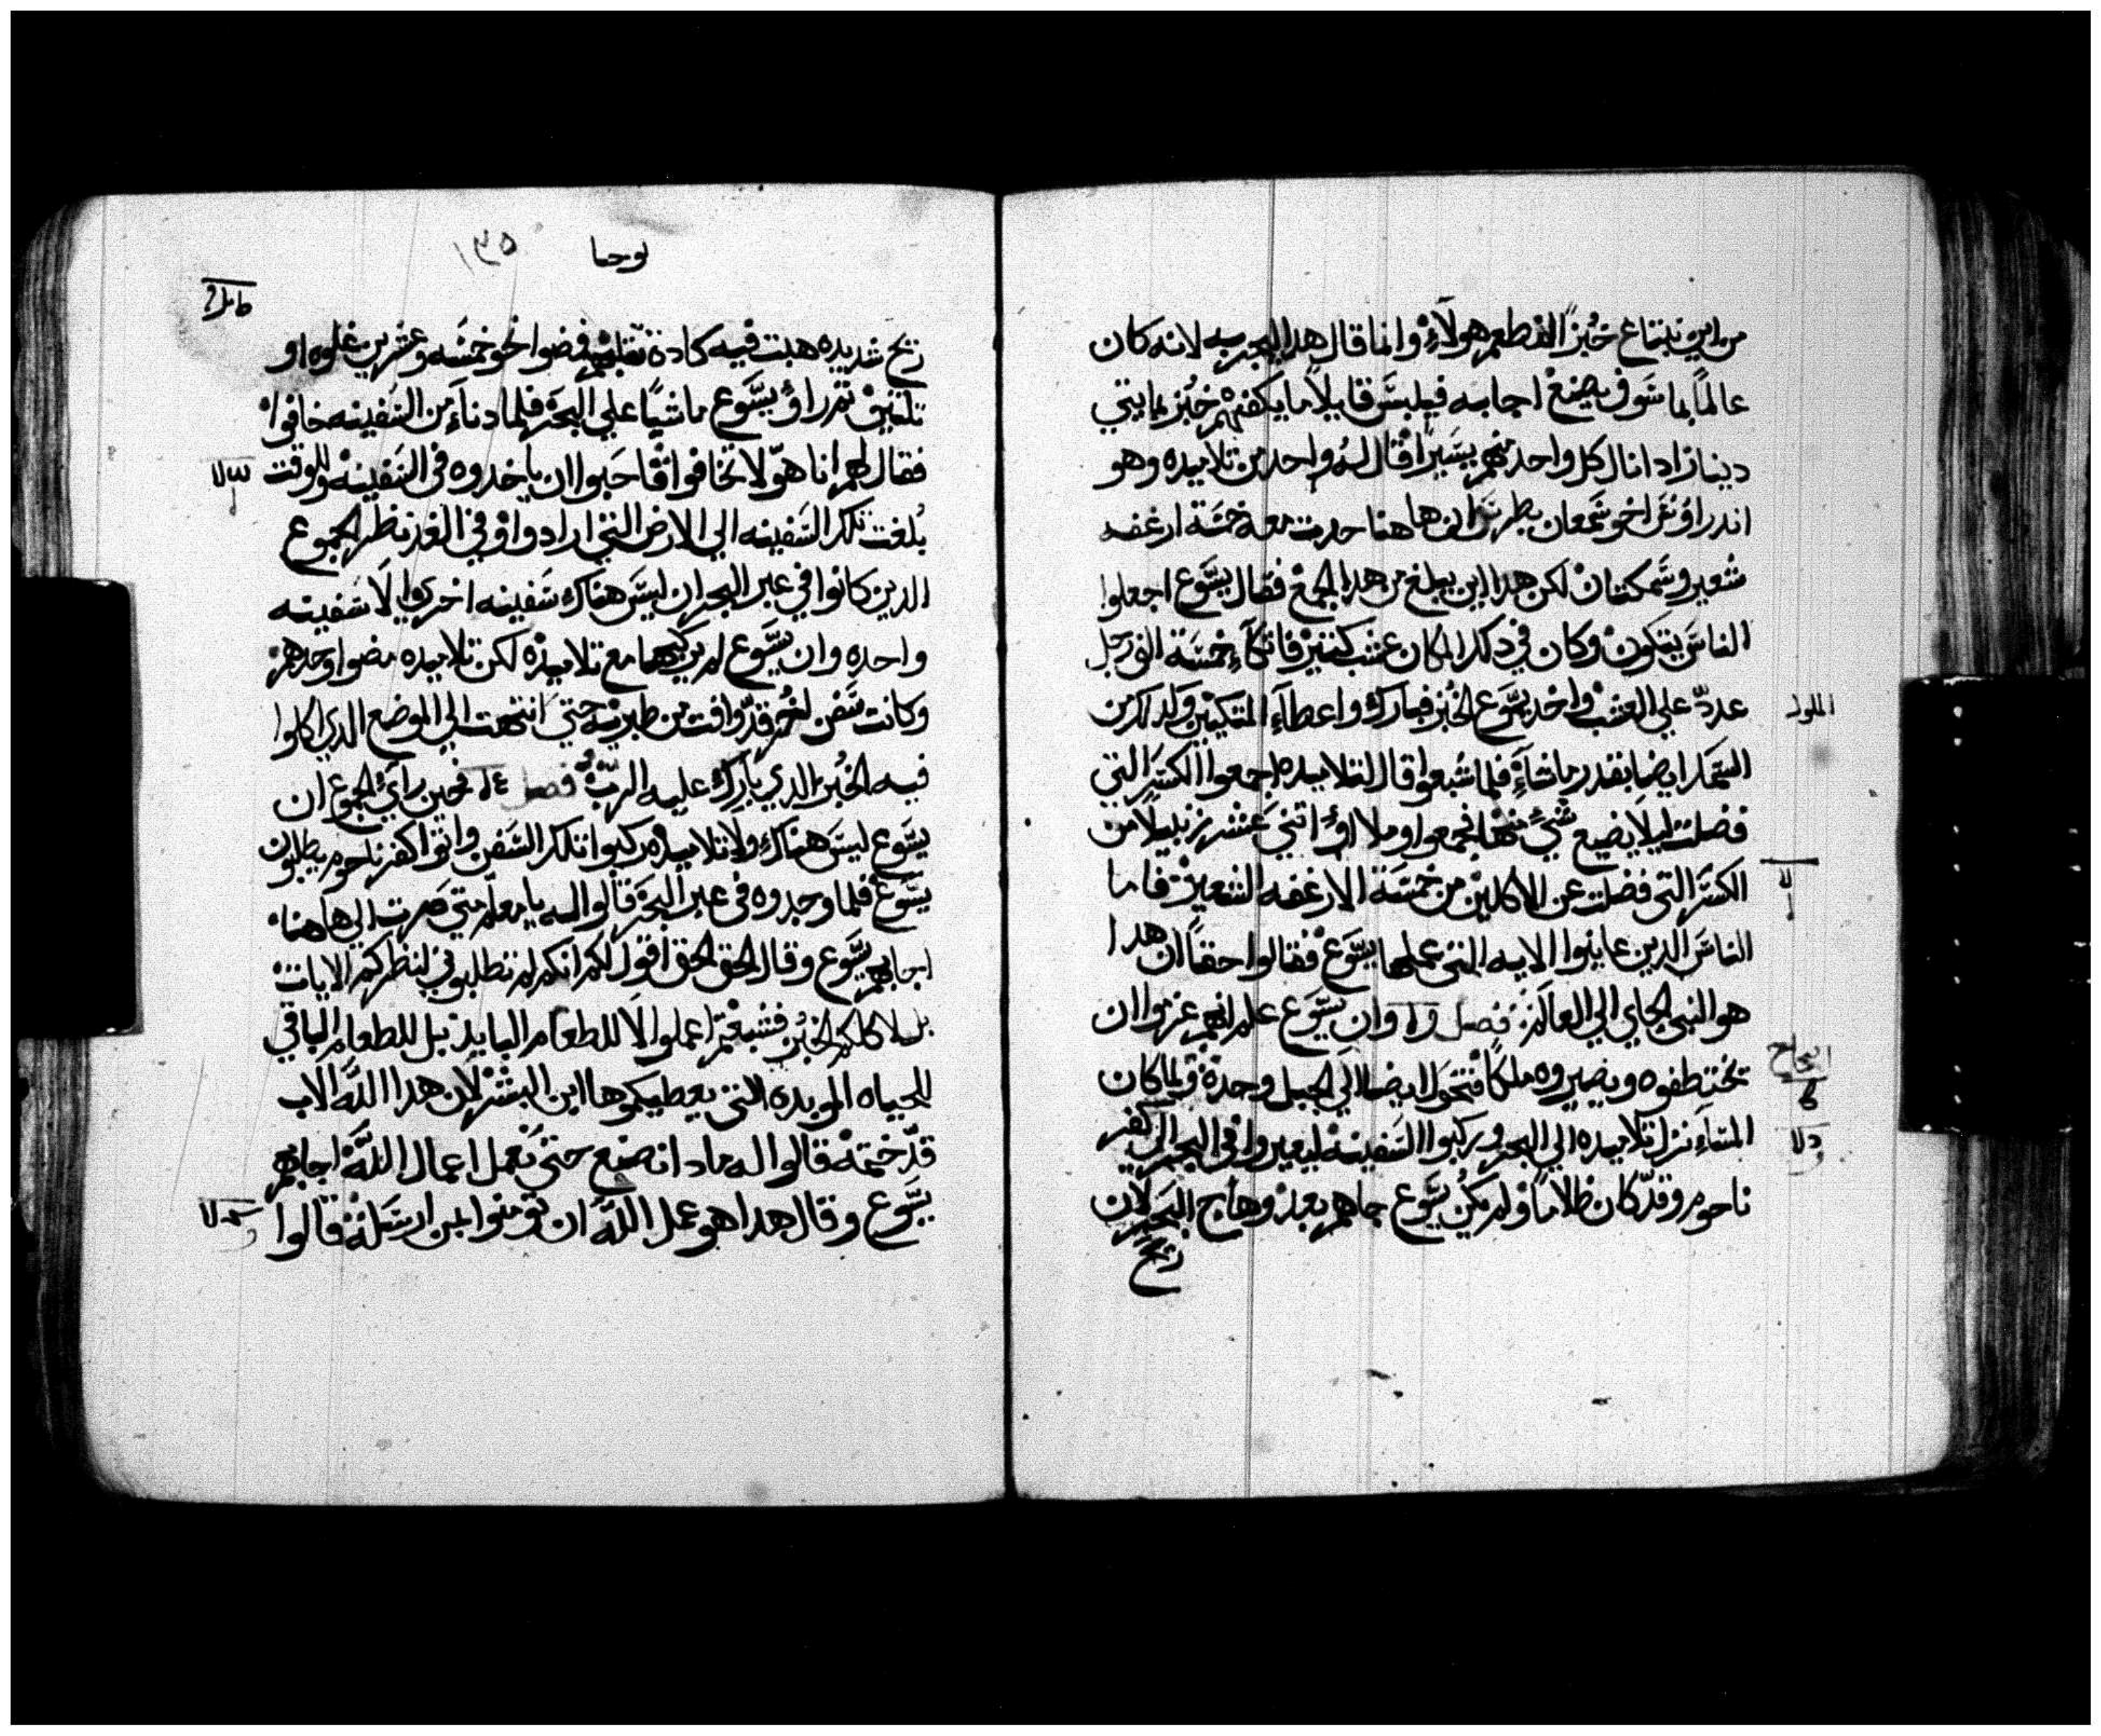 من اين نبتاع خبزًا لنطعم هولآءِ وانما قال هدا ليجربه لانه كان
عالمًا بما سَوف يصنع اجابه فيلبسَ قايلاً ما يكفيهم خبز بمايتي
دينار ادا نال كل واحد منهم يسَيرًا قال له واحد من تلاميده وهو
اندراوُسَ اخو سَمعان بطرسَ ان ها هنا حدث معه خمسَة ارغفه
شعير وسَمكتان لكن هدا اين يبلغ من هدا الجمع فقال يسَّوع اجعلوا
الناسَ يتكون وكان في دلك المكان عشب كتير فاتكآءِ خمسَة الف رجل
عددّ علي العشب واخد يسَّوع الخبز فبارك واعطآءِ المتكيين وكدلك من
السَمك ايضا بقدر ما شآءِ فلما شبعوا قال لتلاميده اجمعوا الكسَر التي
فضلت ليلا يضيع شيءً منها فجمعوا وملااوُا اتني عشر زبيلاً من
الكسَر التي فضلت عن الاكلين من خمسَة الارغفه الشعير فاما
الناسَ الدين عاينوا الايه التي عملها يسَّوع فقالوا حقاً ان هدا
هو النبي الجاي الي العالم فصل وان يسَّوع علم انهم عزموا ان
يختطفوه ويصيروه ملكًا فتحول ايضا الي الجبل وحدة ولما كان
المسَاءِ نزل تلاميده الي البحر وركبوا السَفينه ليعبروا في البحر الي كفر
ناحوم وقدّ كان ظلامًا ولم يكن يسَّوع جاهم بعد وهاج البحر لان
ريح
يوحنا ١٣٥
ريح شديده هبت فيه كادة تقلبهم فمضوا نحو خمسَه وعشرين غلوه او
تلتين تم راوُ يسَّوع ماشيًا علي البحر فلما دناءَ من السَفينه خافوا
فقال لهم انا هوّ لا تخافوا فاحبوا ان ياخدوه في السَفينه وللوقت
بُلغت تلك السَفينه الي الارض التي ارادوا وفي الغد نظر الجموع
الدين كانوا في عبر البحر ان ليسَ هناك سَفينه اخري الا سَفينه
واحده وان يسَّوع لم يركبها مع تلاميده لكن تلاميده مضوا وحدهم
وكانت سَفن اخر قدّ وافت من طبريه حتي انتهت الي الموضع الدي اكلوا
فيه الخبز الدي بارك عليه الربّ فصل ١٤ فحين رأي الجموع ان
يسَّوع ليسَ هناك ولا تلاميده ركبوا تلك السَفن واتوا كفر ناحوم يطلبون
يسَّوع فلما وجدوه في عبر البحر قالوا له يا معلم متي صرت الي هاهنا
اجابهم يسَّوع وقال الحق الحق اقول لكم انكم لم تطلبوني لنظركم الايات
بل لاكلكم الخبز فشبعتم اعملوا الا للطعام البايد بل للطعام الباقي
للحياه الموبده التي يعطيكموها ابن البشر لان هدا اللَّه الاب
قدّ ختمه قالوا له مادا نصنع حتي نعمل اعمال اللَّه اجابهم
يسَّوع وقال هدا هو عمل اللَّه ان تومنوا بمن ارسَله قالوا